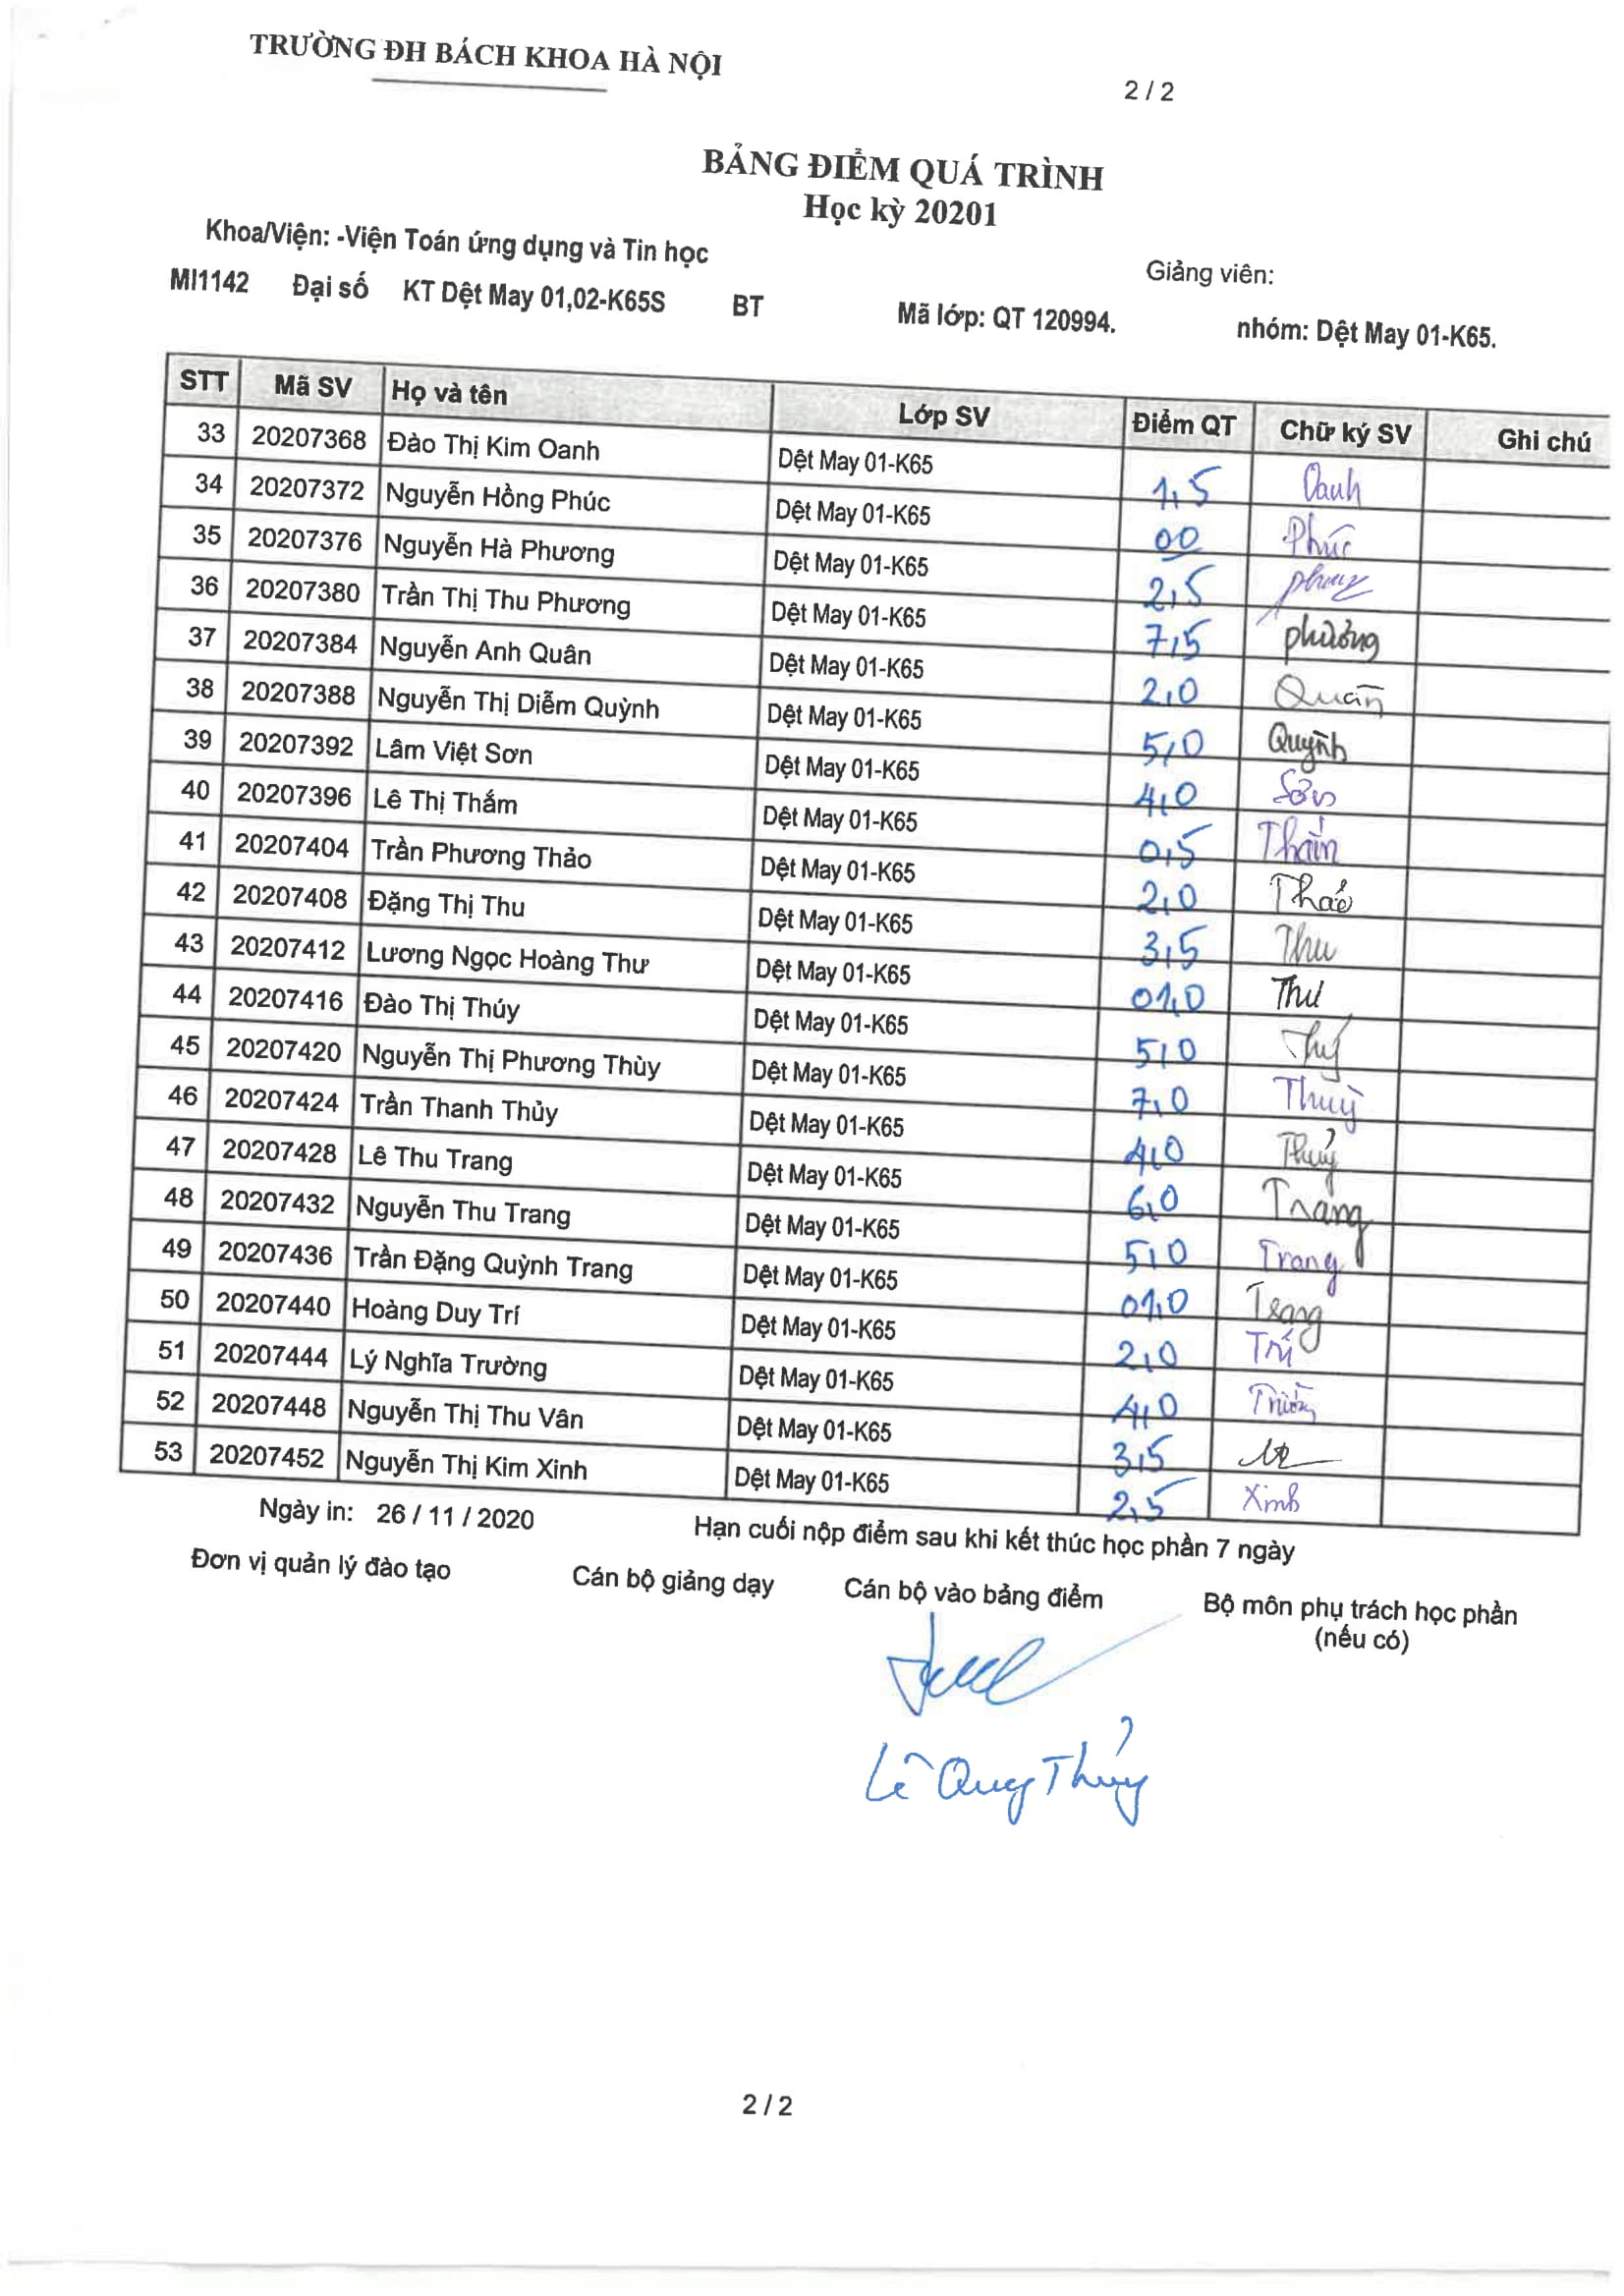 TRƯỜNG ĐH BÁCH KHOA HÀ NỘI
2 / 2
BẢNG ĐIỂM QUÁ TRÌNH
Học kỳ 20201
Khoa/Viện: -Viện Toán ứng dụng và Tin học
Giảng viên:
MI1142 Đại số KT Dệt May 01,02-K65S BT Mã lớp: QT 120994. nhóm: Dệt May 01-K65.
STT Mã SV Họ và tên Lớp SV Điểm QT Chữ ký SV Ghi chú
33 20207368 Đào Thị Kim Oanh Dệt May 01-K65 1,5 Oanh
34 20207372 Nguyễn Hồng Phúc Dệt May 01-K65 00 Phúc
35 20207376 Nguyễn Hà Phương Dệt May 01-K65 2,5 phương
36 20207380 Trần Thị Thu Phương Dệt May 01-K65 7,5 phương
37 20207384 Nguyễn Anh Quân Dệt May 01-K65 2,0 Quân
38 20207388 Nguyễn Thị Diễm Quỳnh Dệt May 01-K65 5,0 Quỳnh
39 20207392 Lâm Việt Sơn Dệt May 01-K65 4,0 Sơn
40 20207396 Lê Thị Thắm Dệt May 01-K65 0,5 Thắm
41 20207404 Trần Phương Thảo Dệt May 01-K65 2,0 Thảo
42 20207408 Đặng Thị Thu Dệt May 01-K65 3,5 Thu
43 20207412 Lương Ngọc Hoàng Thư Dệt May 01-K65 01,0 Thư
44 20207416 Đào Thị Thúy Dệt May 01-K65 5,0 Thúy
45 20207420 Nguyễn Thị Phương Thùy Dệt May 01-K65 7,0 Thuỳ
46 20207424 Trần Thanh Thủy Dệt May 01-K65 4,0 Thuỷ
47 20207428 Lê Thu Trang Dệt May 01-K65 6,0 Trang
48 20207432 Nguyễn Thu Trang Dệt May 01-K65 5,0 Trang
49 20207436 Trần Đặng Quỳnh Trang Dệt May 01-K65 01,0 Trang
50 20207440 Hoàng Duy Trí Dệt May 01-K65 2,0 Trí
51 20207444 Lý Nghĩa Trường Dệt May 01-K65 4,0 Trường
52 20207448 Nguyễn Thị Thu Vân Dệt May 01-K65 3,5
53 20207452 Nguyễn Thị Kim Xinh Dệt May 01-K65 2,5 Xinh
Ngày in: 26 / 11 / 2020 Hạn cuối nộp điểm sau khi kết thúc học phần 7 ngày
Đơn vị quản lý đào tạo Cán bộ giảng dạy Cán bộ vào bảng điểm Bộ môn phụ trách học phần
(nếu có)
Lê Quang Thủy
2 / 2